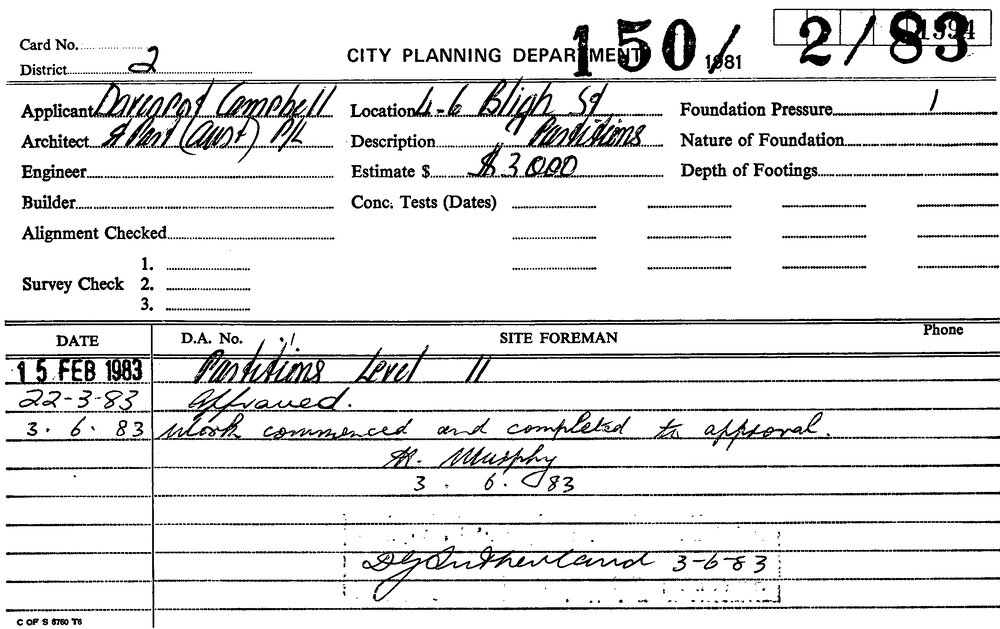 Card No.
District 2
CITY PLANNING DEPARTMENT
150/ 2/83
1981
1994
Applicant Davenport Campbell
Location 4-6 Bligh St
Foundation Pressure
Architect & Part (Aust) P/L
Description Partitions
Nature of Foundation
Engineer
Estimate $ $3000
Depth of Footings
Builder
Conc. Tests (Dates)
Alignment Checked
Survey Check 1.
2.
3.
DATE D.A. No. SITE FOREMAN Phone
15 FEB 1983 Partitions Level 11
22-3-83 Approved.
3. 6. 83 Work commenced and completed to approval.
Murphy
3. 6. 83
DG Sutherland 3-6-83
C OF S 6760 T6